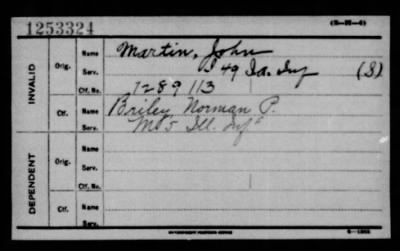 1253324
(3-80-6)
INVALID
Orig.
Name Martin, John
Serv. I 49 Ia. Inf (S)
Ctf. No. 1289113
Ctf.
Name Briley Norman P.
Serv. M 5 Ill. Inf
DEPENDENT
Orig.
Name
Serv.
Ctf. No.
Ctf.
Name
Serv.